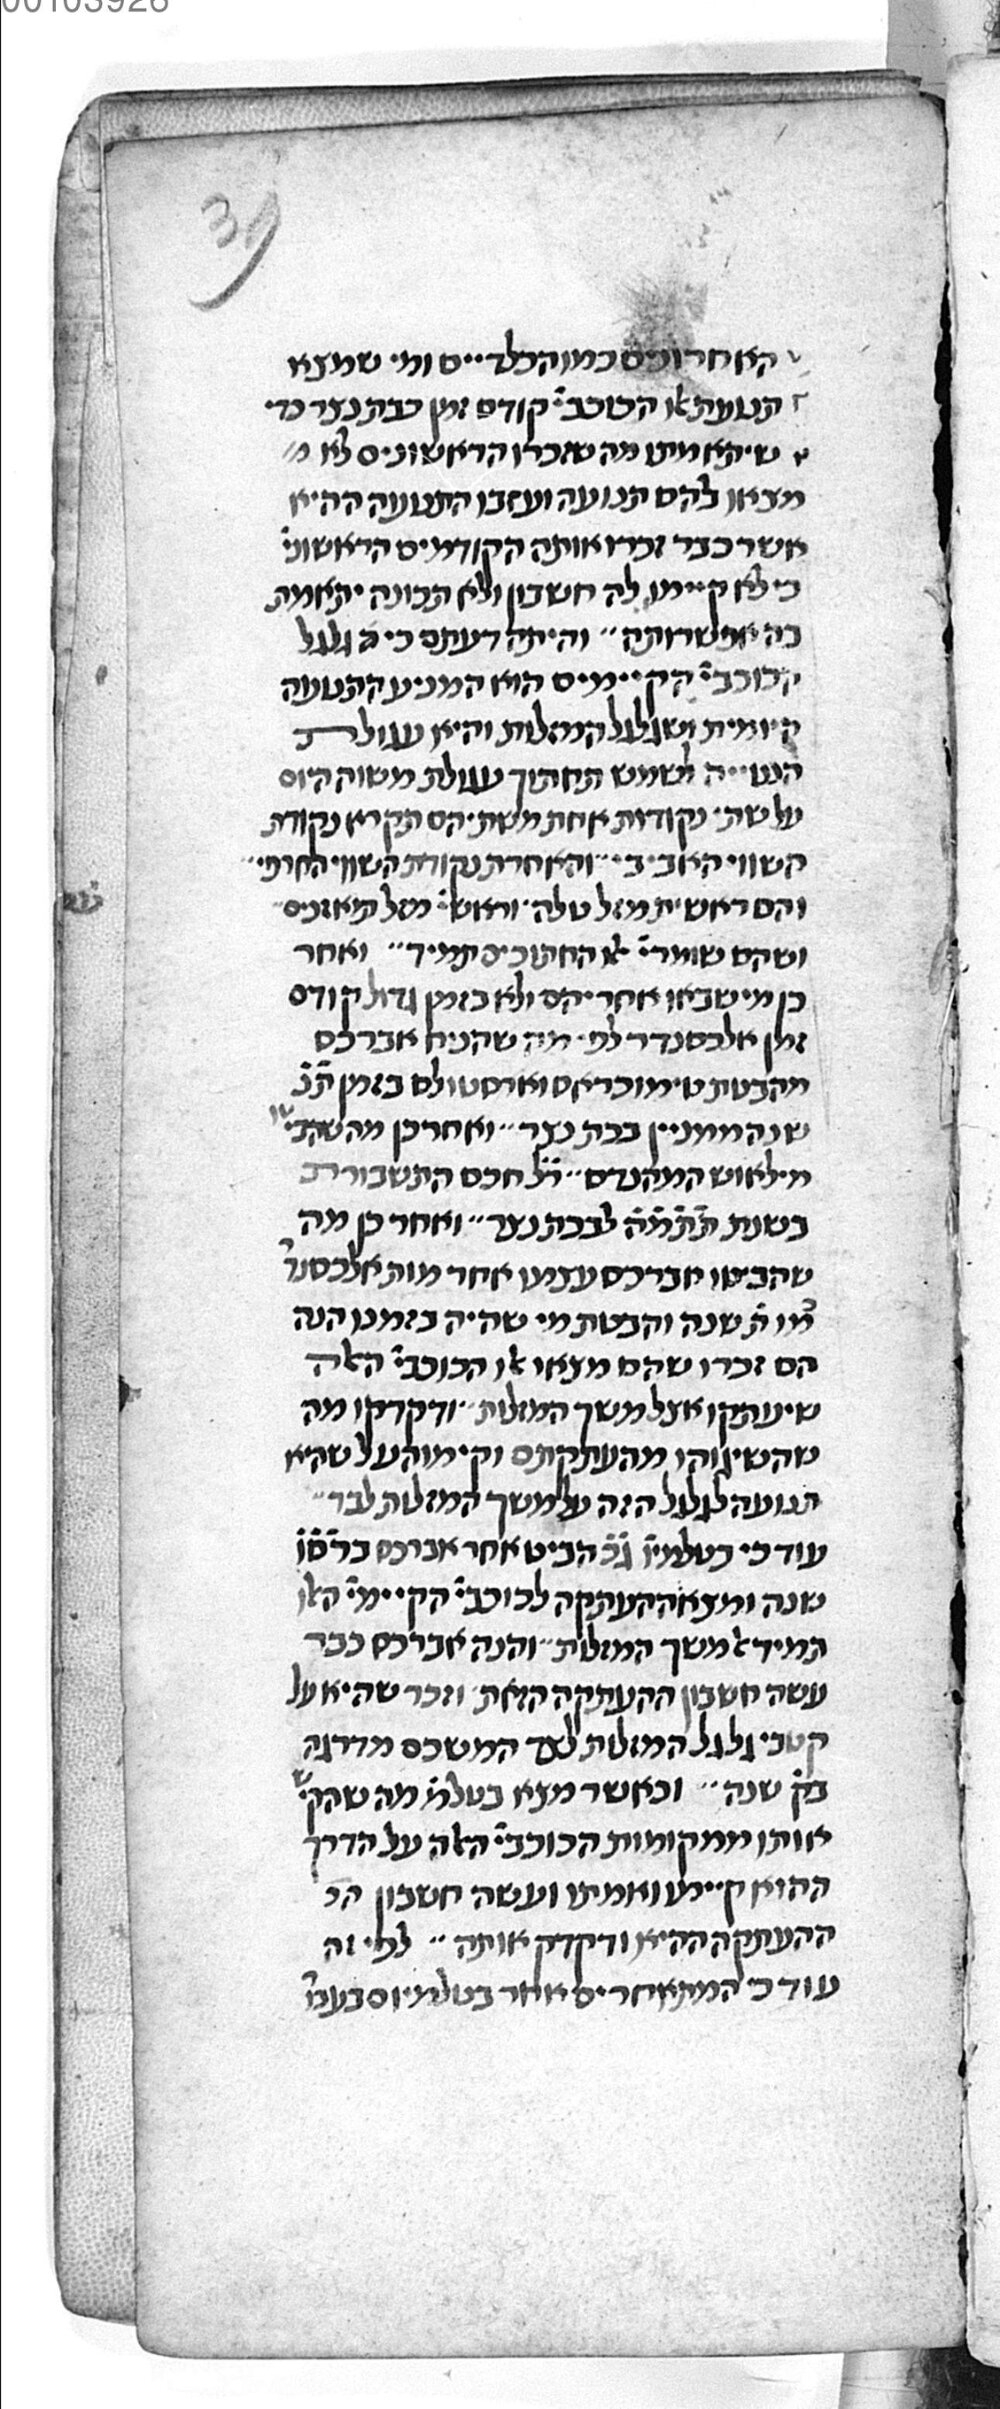 00103926
39
האחרונים כמו הכלדיים ומי שמצא
תנועת אלו הכוכבי' קודם זמן נבת נצר כדי
שיתאמתו מה שזכרו הראשונים לא מ
מצאו להם תנועה ועזבו התנועה ההיא
אשר כבר זכרו אותה הקודמים הראשוני'
כי לא קיימו לה חשבון ולא תכונה יתאמת
בה אפשרותה והיתה דעתם כי גלגל
הכוכבי' הקיימים הוא המניע התנועה
היומית ושגלגל המזלות והיא עגולת
הנטייה לשמש תחתוך עגולת משוה היום
על שתי נקודות אחת משתיהם תקרא נקודת
השווי האביביי והאחרת נקודת השווי החרפי
והם ראשית מזל טלה וראש' מזל מאזנים
ושהם שומרי' אלו החתוכים תמיד ואחר
כן מי שבאו אחריהם ולא בזמן גדול קודם
זמן אלכסנדר לפי מה שהניח אברכס
מהבטת טימוכראס וארסטולס בזמן ת'נ'
שנה ממניין נבת נצר ואחר כן מה שהביטו
מילאוש המהנדס ר'ל חכם התשבורת
בשנת ת'ת'מ'ה' לנבת נצר ואחר כן מה
שהביטו אברכס עצמו אחר מות אלכסנדר
כמו ת' שנה והבטת מי שהיה בזמנו הנה
הם זכרו שהם מצאו אלו הכוכבי' האלה
שיעתקו אצל משך המזלות ודקדקו מה
שהשיגוהו מהעתקתם וקימוה על שהיא
תנועה לגלגל הזה על משך המזלות לבד
עוד כי בטלמיו' ג'כ' הביט אחר אברכס בר'ס'ו'
שנה ומצא ההעתקה לכוכבי' הקיימי' האלו
תמיד אל משך המזלות והנה אברכס כבר
עשה חשבון ההעתקה הזאת וזכר שהיא על
קטבי גלגל המזלות לצד המשכם מדרגה
בק' שנה וכאשר מצא בטלמ' מה שהקיש
אותו ממקומות הכוכבי' האלה על הדרך
ההוא קיימו ואמתו ועשה חשבון הכ
ההעתקה ההיא ודקדק אותה לפי זה
עוד כי המתאחרים אחר בטלמיוס בעבור